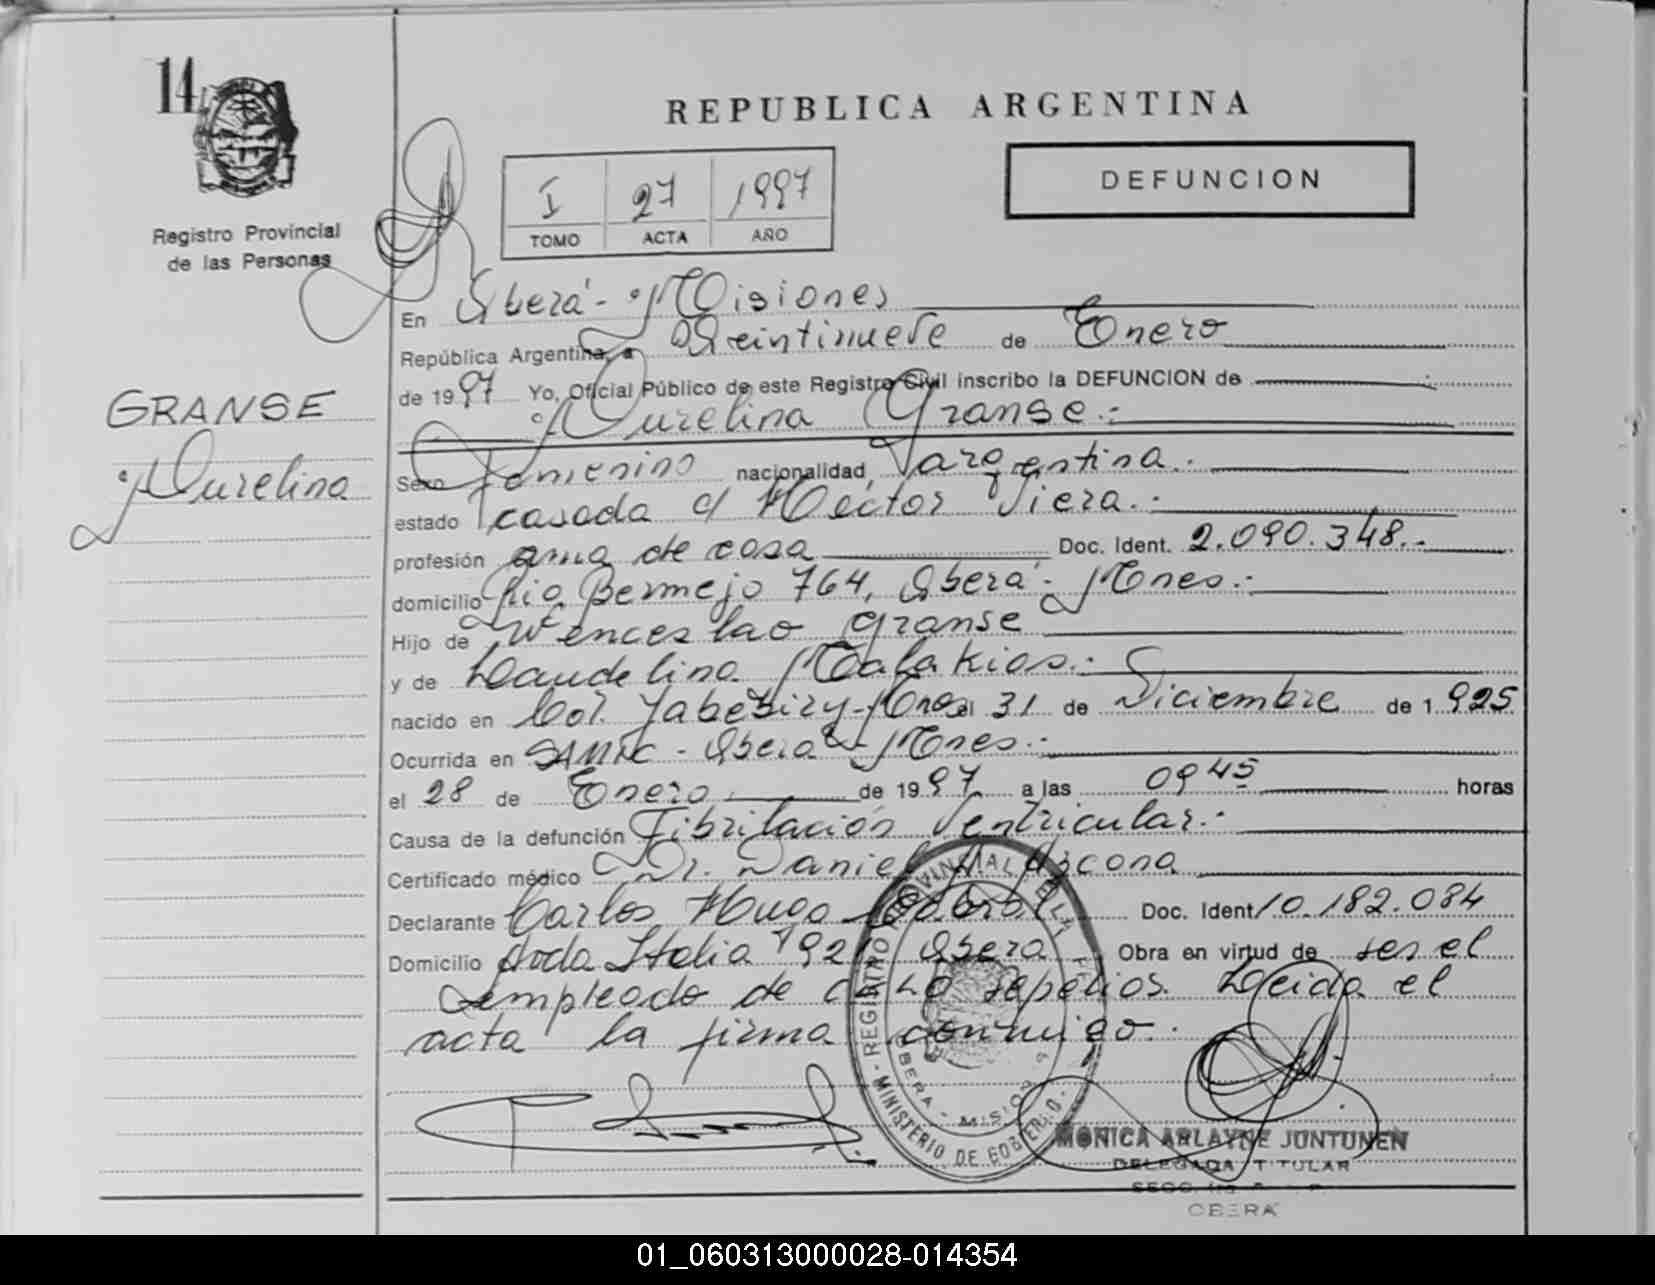 14
REPUBLICA ARGENTINA
DEFUNCION
I 27 1997
TOMO ACTA AÑO
Registro Provincial
de las Personas
En Oberá - Misiones
República Argentina, a Veintinueve de Enero
de 1997 Yo, Oficial Público de este Registro Civil inscribo la DEFUNCION de
Aurelina Granse.-
GRANSE
Aurelina
Sexo Femenino nacionalidad, argentina.-
estado casada c/ Hector Viera.-
profesión ama de casa Doc. Ident. 2.090.348.-
domicilio Rio Bermejo 764, Oberá - Mnes.-
Hijo de Wenceslao Granse
y de Laudelina
nacido en Col. Yabebiry - Mnes el 31 de Diciembre de 1.925
Ocurrida en SAMIC - Oberá - Mnes.-
el 28 de Enero de 1997 a las 0945 horas
Causa de la defunción Fibrilación Ventricular.-
Certificado médico Dr. Daniel Azcona
Declarante Carlos Hugo Doc. Ident 10.182.084
Domicilio Avda Italia 192 Oberá Obra en virtud de ser el
empleado de sepelios. Leida el
acta la firma conmigo.-
REGISTRO PROVINCIAL DE LAS PERSONAS
MINISTERIO DE GOBIERNO
OBERA - MISIONES
MONICA ARLAYNE JUNTUNEN
DELEGADA TITULAR
OBERA
01_060313000028-014354